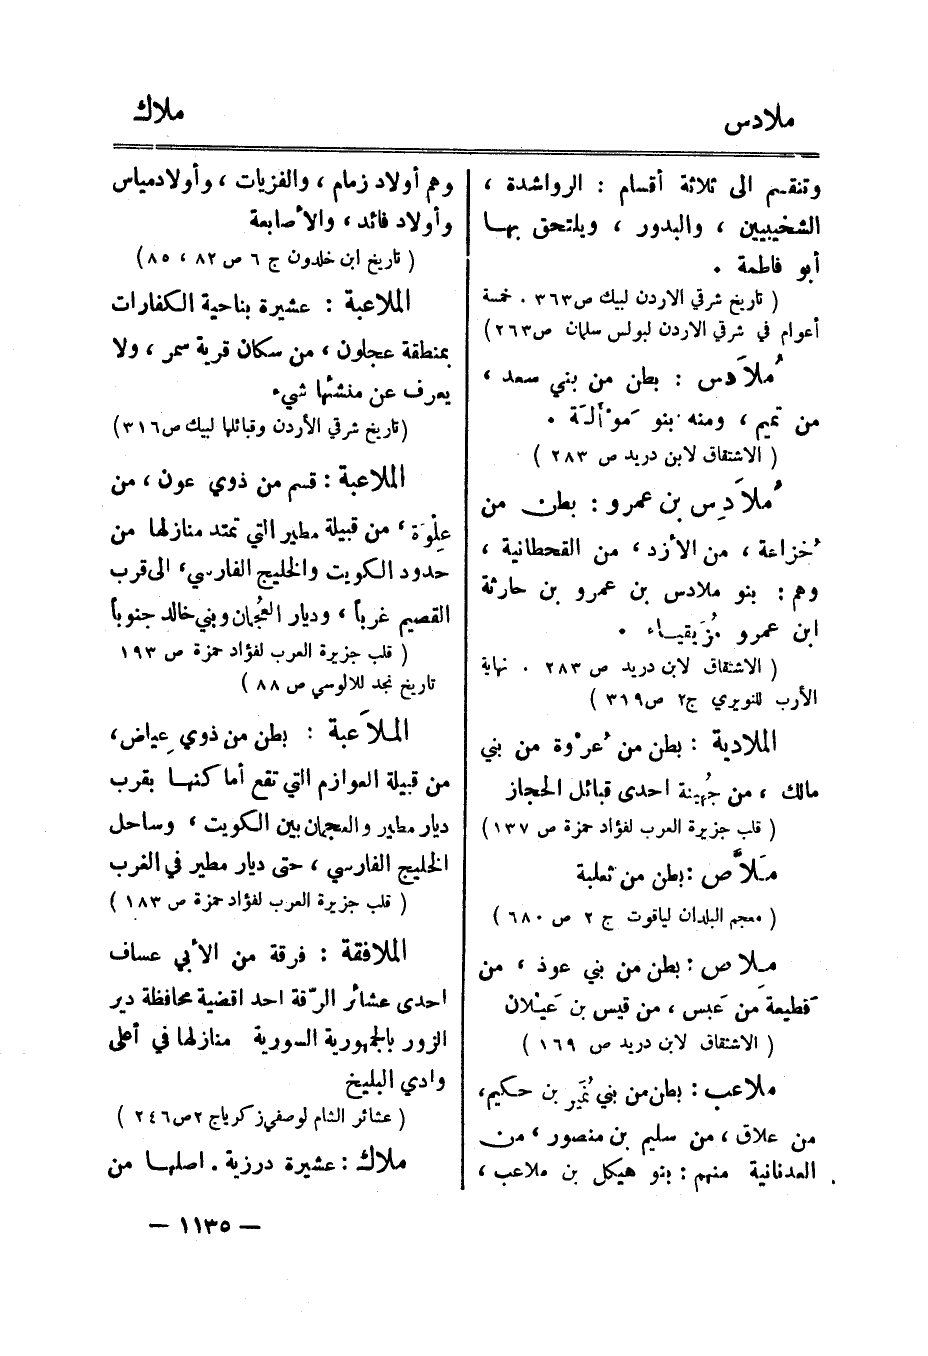 ملادس
ملاك
وتنقسم الى ثلاثة أقسام : الرواشدة ،
الشخيبيين ، والبدور ، ويلتحق بها
أبو فاطمة .
( تاريخ شرقي الاردن لبيك ص٣٦٣ . خمسة
أعوام في شرقي الاردن لبولس سلمان ص٢٦٣)
مُلاَدَس : بطن من بني سعد ،
من تميم ، ومنه بنو مَوْأَلَة .
( الاشتقاق لابن دريد ص ٢٨٣ )
مُلاَدِس بن عمرو : بطن من
خُزاعة ، من الأزد ، من القحطانية ،
وهم : بنو ملادس بن عمرو بن حارثة
ابن عمرو مُزَيقياء .
( الاشتقاق لابن دريد ص ٢٨٣ . نهاية
الأرب للنويري ج٢ ص٣١٩ )
الملادية : بطن من عُرْوة من بني
مالك ، من جُهينة احدى قبائل الحجاز
( قلب جزيرة العرب لفؤاد حمزة ص ١٣٧)
مَلاَّص : بطن من ثعلبة
( معجم البلدان لياقوت ج ٢ ص ٦٨٠ )
مِلاص : بطن من بني عوذ ، من
قَطيعة من عَبس ، من قيس بن عَيْلان
( الاشتقاق لابن دريد ص ١٦٩ )
ملاعب : بطن من بني نُمَير بن حكيم،
من علاق ، من سليم بن منصور ، من
العدنانية منهم : بنو هيكل بن ملاعب ،
وهم أولاد زمام ، والفزيات ، وأولادمياس
وأولاد فائد ، والأصابعة
( تاريخ ابن خلدون ج ٦ ص ٨٢ ، ٨٥ )
الملاعبة : عشيرة بناحية الكفارات
بمنطقة عجلون ، من سكان قرية سمر ، ولا
يعرف عن منشئها شيء
(تاريخ شرقي الأردن وقبائلها لبيك ص٣١٦)
الملاعبة : قسم من ذوي عون ، من
عِلْوَة ، من قبيلة مطير التي تمتد منازلها من
حدود الكويت والخليج الفارسي، الى قرب
القصيم غرباً ، وديار العُجمان وبني خالد جنوباً
( قلب جزيرة العرب لفؤاد حمزة ص ١٩٣
تاريخ نجد للالوسي ص ٨٨ )
الملاَعبة : بطن من ذوي عِياض،
من قبيلة العوازم التي تقع أماكنها بقرب
ديار مطير والعجمان بين الكويت ، وساحل
الخليج الفارسي ، حتى ديار مطير في الغرب
( قلب جزيرة العرب لفؤاد حمزة ص ١٨٣ )
الملافقة : فرقة من الأبي عساف
احدى عشائر الرّقة احد اقضية محافظة دير
الزور بالجمهورية السورية منازلها في أعلى
وادي البليخ
( عشائر الشام لوصفي زكريا ج ٢ ص ٢٤٦ )
ملاك : عشيرة درزية . اصلها من
— ١١٣٥ —